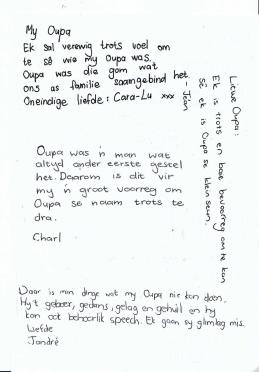 My Oupa
Ek sal verewig trots voel om
te sê wie my Oupa was.
Oupa was die gom wat
ons as familie saamgebind het.
Oneindige liefde: Cara-Lu xxx
Liewe Oupa:
Ek is trots en baie bevoorreg om te kan
sê ek is Oupa se kleinseun.
-Jean
Oupa was 'n man wat
altyd ander eerste gestel
het. Daarom is dit vir
my 'n groot voorreg om
Oupa se naam trots te
dra.
Charl
Daar is min dinge wat my Oupa nie kon doen.
Hy't geboer, gedans, gelag en gehuil en hy
kon ook behoorlik speech. Ek gaan sy glimlag mis.
Liefde
Jandré